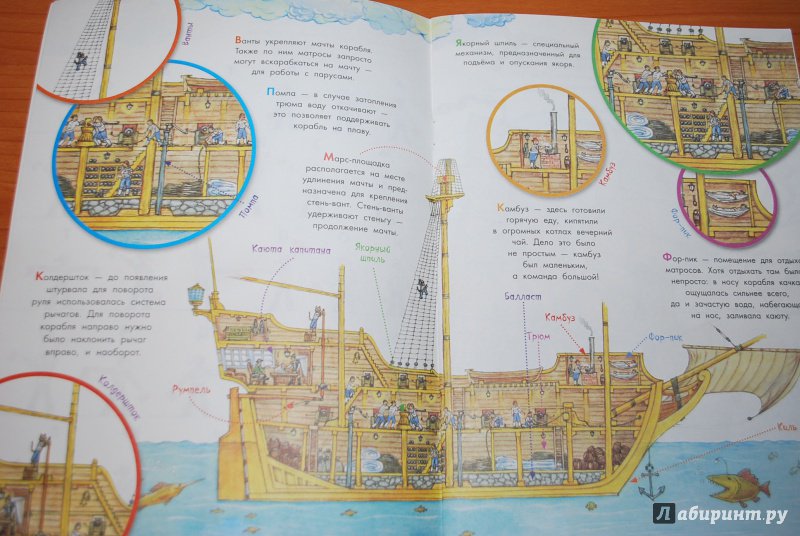 Ванты
Ванты укрепляют мачты корабля.
Также по ним матросы запросто
могут вскарабкаться на мачту —
для работы с парусами.
Помпа — в случае затопления
трюма воду откачивают —
это позволяет поддерживать
корабль на плаву.
Помпа
Марс-площадка
располагается на месте
удлинения мачты и пред-
назначена для крепления
стень-вант. Стень-ванты
удерживают стеньгу —
продолжение мачты.
Колдершток — до появления
штурвала для поворота
руля использовалась система
рычагов. Для поворота
корабля направо нужно
было наклонить рычаг
вправо, и наоборот.
Колдершток
Каюта капитана
Якорный
шпиль
Румпель
Якорный шпиль — специальный
механизм, предназначенный для
подъёма и опускания якоря.
Камбуз
Камбуз — здесь готовили
горячую еду, кипятили
в огромных котлах вечерний
чай. Дело это было
не простым — камбуз
был маленьким,
а команда большой!
Фор-пик
Фор-пик — помещение для отдыха
матросов. Хотя отдыхать там было
непросто: в носу корабля качка
ощущалась сильнее всего,
да и зачастую вода, набегающая
на нос, заливала каюту.
Балласт
Камбуз
Трюм
Фор-пик
Киль
Лабиринт.ру